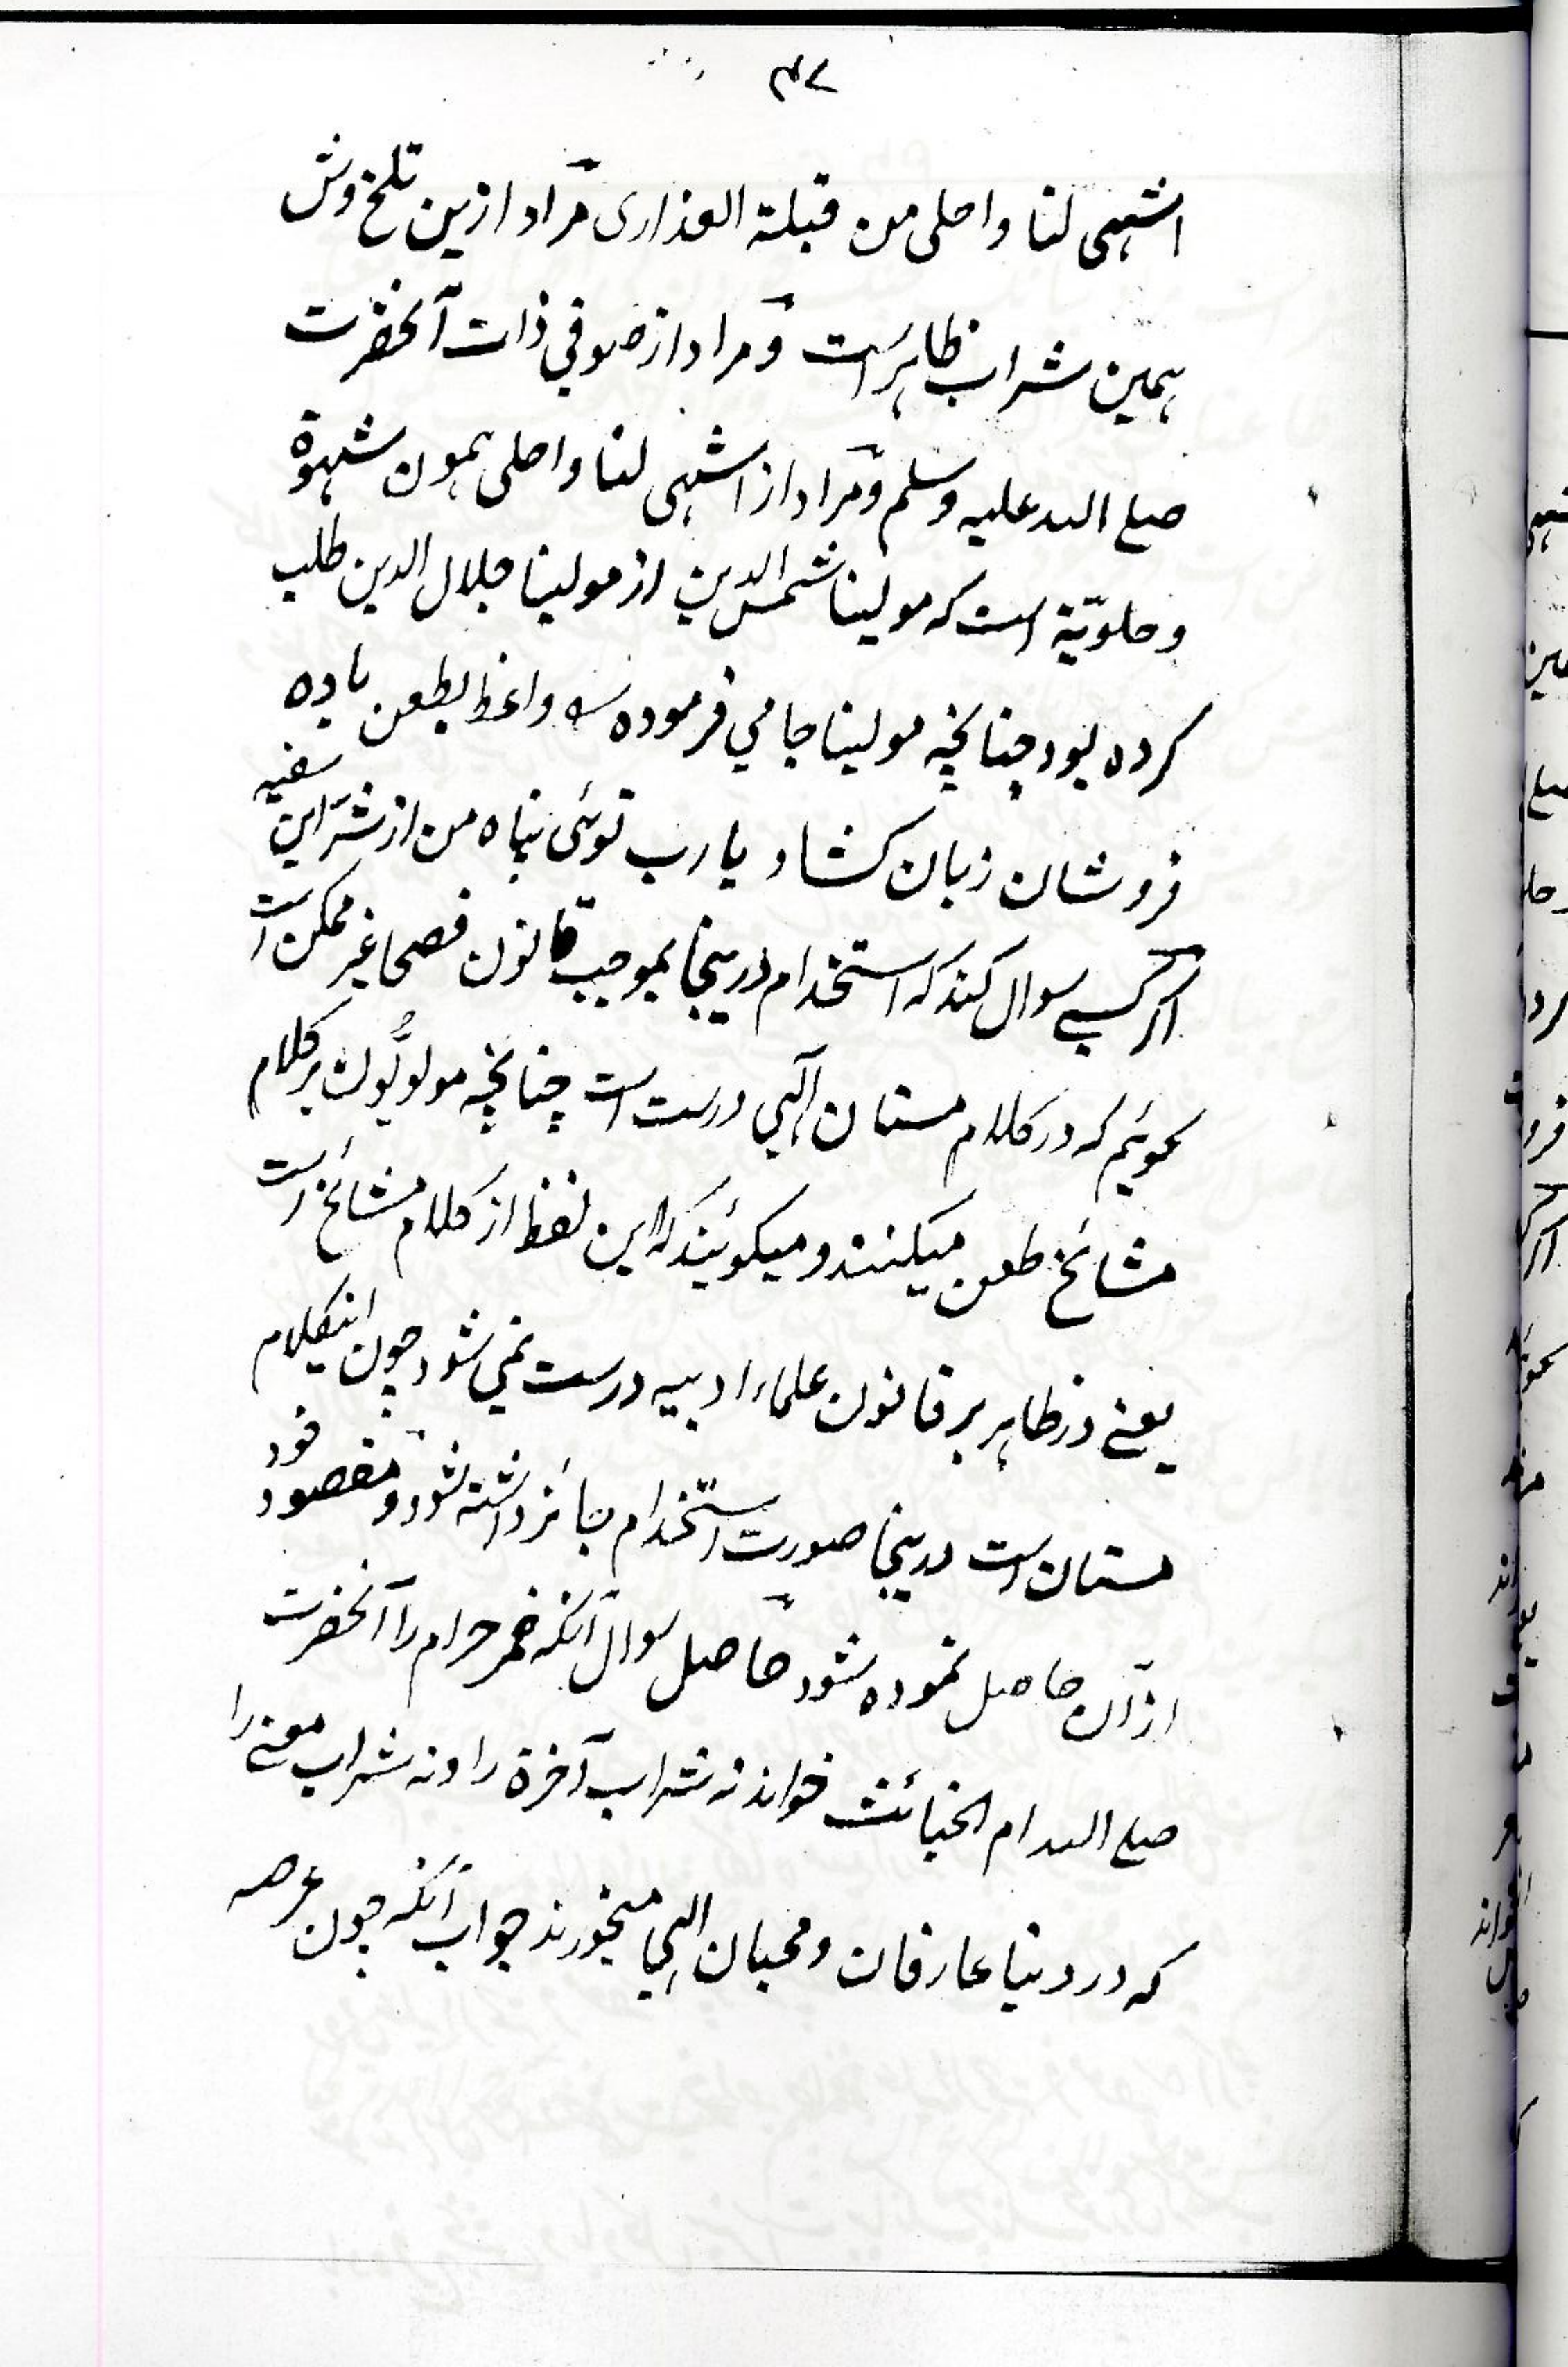 ۴۷
اشهی لنا واحلی من قبلة العذاری مراد ازین تلخ وش
همین شراب ظاهر است و مراد از صوفی ذات آنحضرت
صلی الله علیه وسلم و مراد از اشهی لنا واحلی همون شهوة
و حلویّة است که مولینا شمس الدین از مولینا جلال الدین طلب
کرده بود چنانچه مولینا جامی فرموده واعظ بطعن باده
فروشان زبان کشاد یا رب توئی پناه من از شرّ این سفیه
اگر کسے سوال کند که استخدام درینجا بموجب قانون فصحا غیر ممکن است
گوئیم که در کلام مستان الٓهی درست است چنانچه مولویُون بر کلام
مشائخ طعن میکنند و میگویند که این لفظ از کلام مشائخ است
یعنے در ظاهر بر قانون علماء ادبیه درست نمی شود چون اینکلام
مستان است درینجا صورت استخدام جائز داشته شود و مقصود خود
از آن حاصل نموده شود حاصل سوال آنکه خمر حرام را آنحضرت
صلی الله ام الخبائث خواند نه شراب آخرة را و نه شراب معنے را
که در دنیا عارفان و محبان الٓهی میخورند جواب آنکه چون عرصه